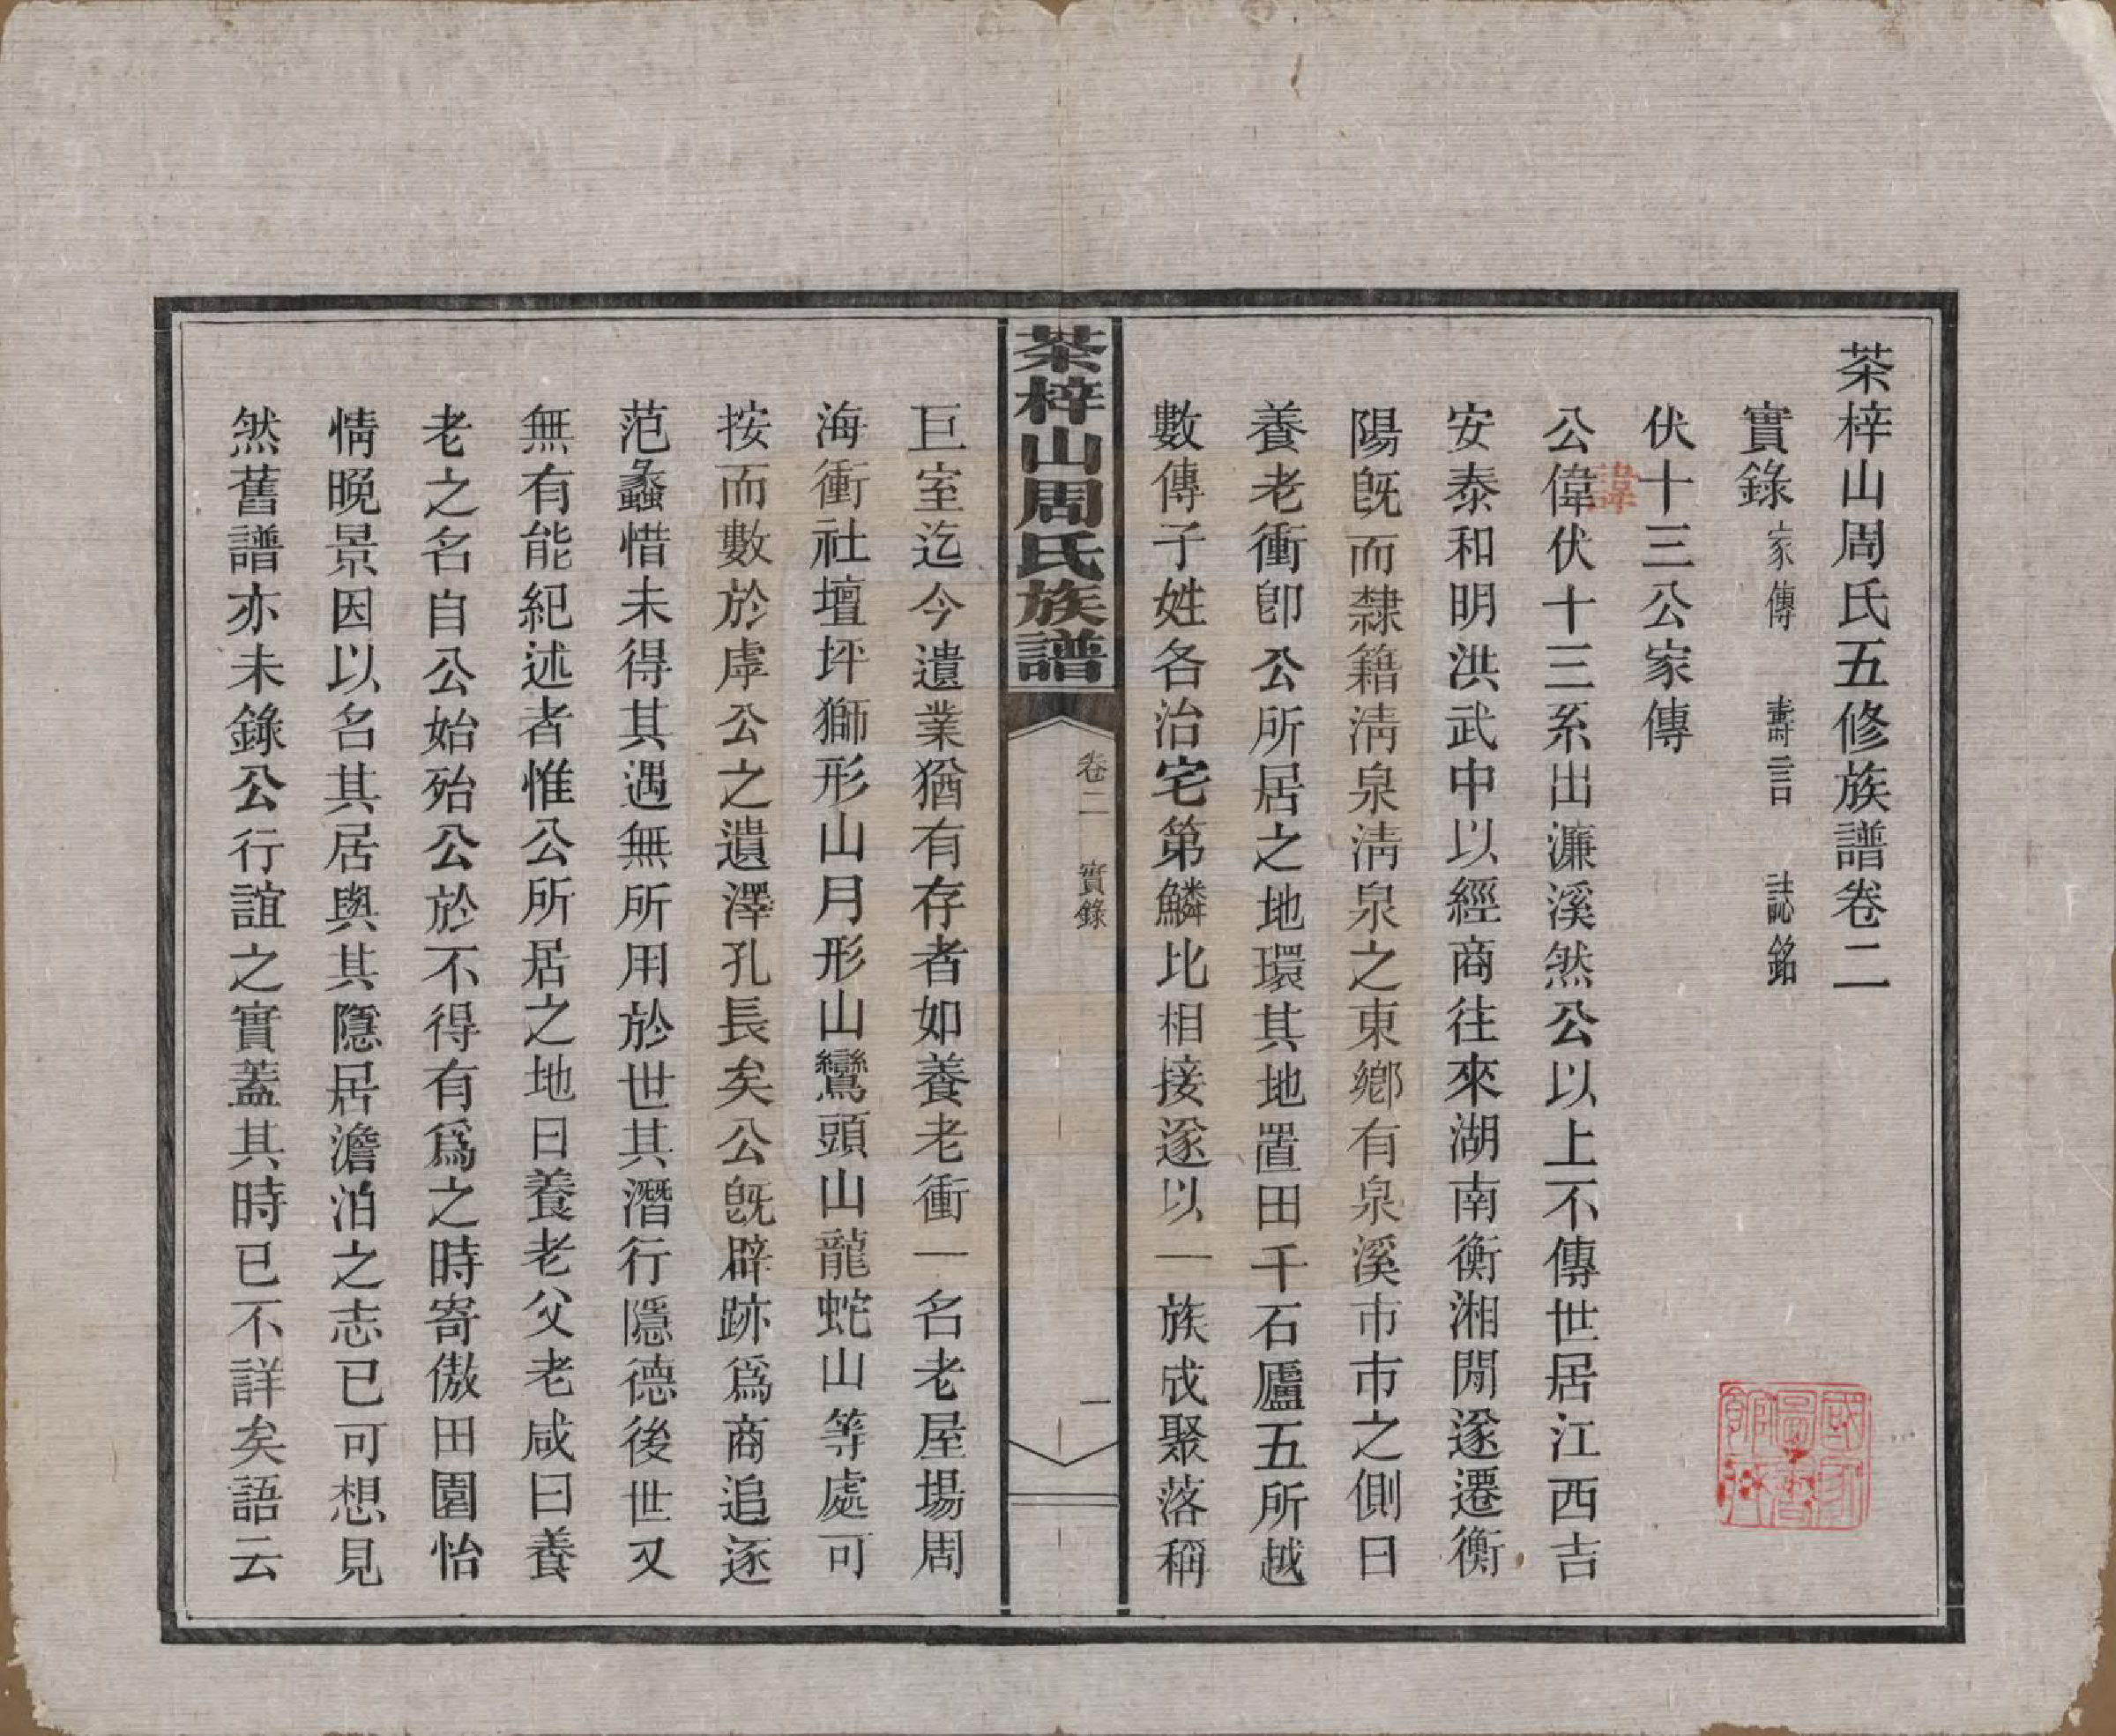 茶梓山周氏五修族譜卷二
實錄 家傳 壽言 誌銘
伏十三公家傳
公偉伏十三系出濂溪然公以上不傳世居江西吉
諱
安泰和明洪武中以經商往來湖南衡湘閒遂遷衡
陽旣而隸籍淸泉淸泉之東鄉有泉溪市市之側曰
養老衝卽公所居之地環其地置田千石廬五所越
數傳子姓各治宅第鱗比相接遂以一族成聚落稱
國家圖書館藏
茶梓山周氏族譜
卷二 實錄
一
巨室迄今遺業猶有存者如養老衝一名老屋場周
海衝社壇坪獅形山月形山鸞頭山龍蛇山等處可
按而數於虖公之遺澤孔長矣公旣辟跡爲商追逐
范蠡惜未得其遇無所用於世其潛行隱德後世又
無有能紀述者惟公所居之地曰養老父老咸曰養
老之名自公始殆公於不得有爲之時寄傲田園怡
情晚景因以名其居與其隱居澹泊之志已可想見
然舊譜亦未錄公行誼之實蓋其時已不詳矣語云